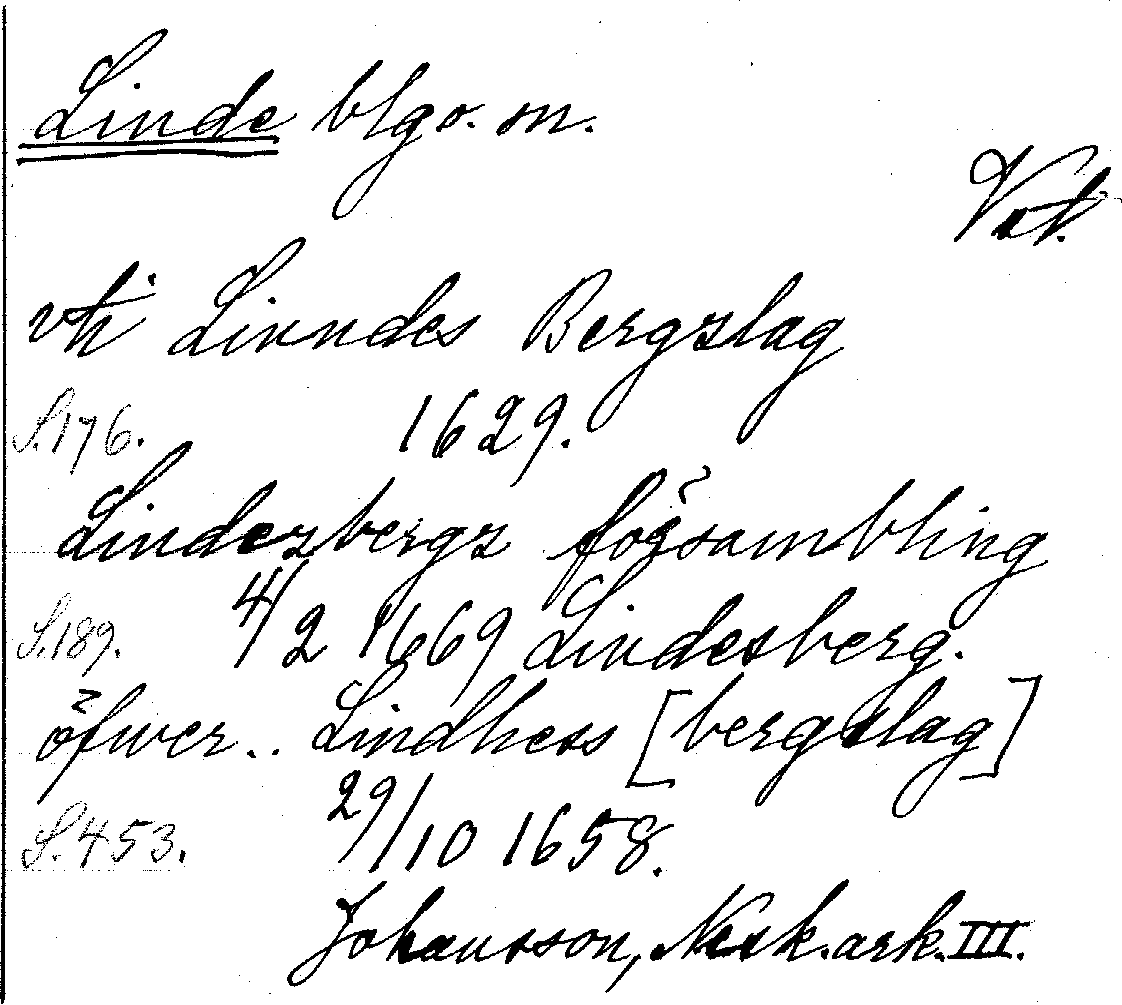 Linde blgo. sn.
Vst.
vti Linndes Bergslag
S.176. 1629.
Lindesbergz försambling
S.189. 4/2 1669 Lindesberg.
öfwer.. Lindhess [bergslag]
S.453. 29/10 1658.
Johansson, Nosk. ark. III.